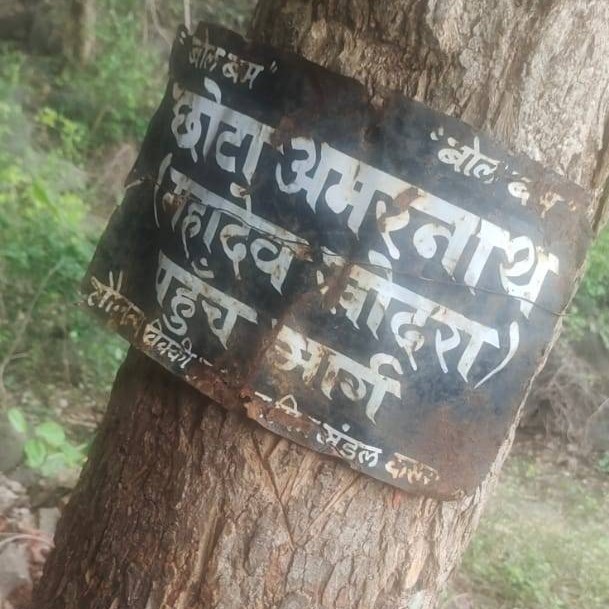 "बोल बम"
"बोल बम"
छोटा अमरनाथ
(महादेव खोदरा)
पहुँच मार्ग
मंडल